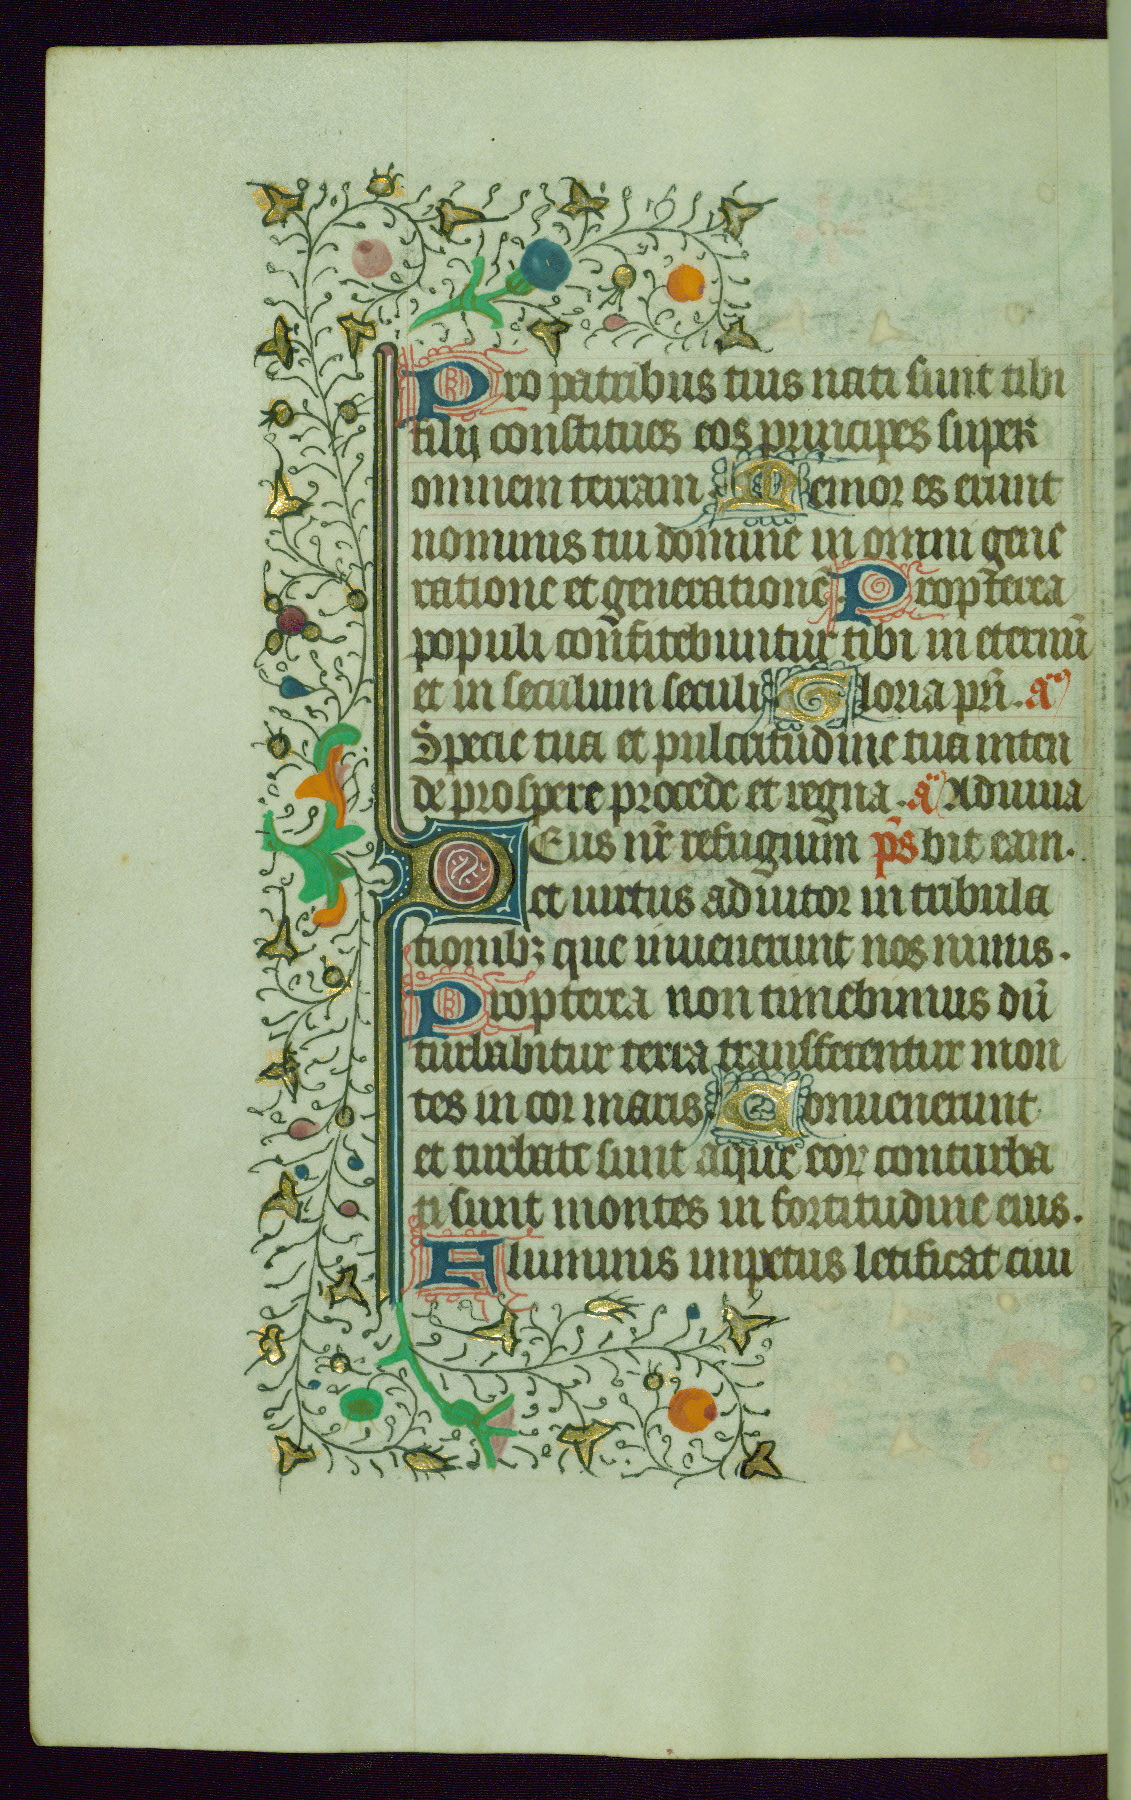 Pro patribus tuis nati sunt tibi
filij constitues eos principes super
omnem terram Memor es erunt
nominis tui domine in omni gene
ratione et generatione Propterea
populi confitebuntur tibi in eternū
et in seculum seculi Gloria pr̄i. a͞
Specie tua et pulcritudine tua inten
de prospere procede et regna. a͞ Adiuua
Deus nr̄ refugium ps̄ bit eam.
et uirtus adiutor in tribula
tionibꝫ que inuenerunt nos nimis.
Propterea non timebimus dū
turbabitur terra transferentur mon
tes in cor maris Conuenerunt
et turbate sunt aque eoꝝ conturba
ti sunt montes in fortitudine eius.
Fluminis impetus letificat ciui